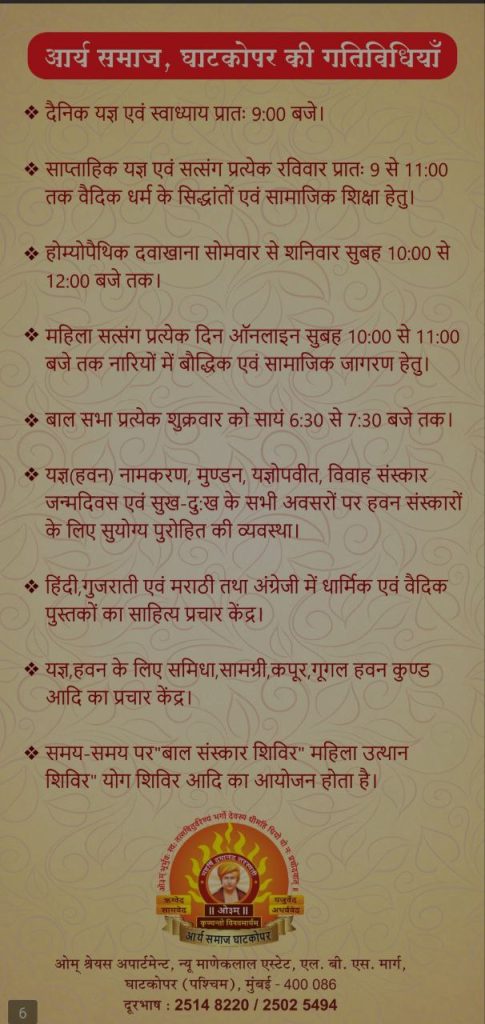 आर्य समाज, घाटकोपर की गतिविधियाँ
❖ दैनिक यज्ञ एवं स्वाध्याय प्रातः 9:00 बजे।
❖ साप्ताहिक यज्ञ एवं सत्संग प्रत्येक रविवार प्रातः 9 से 11:00
तक वैदिक धर्म के सिद्धांतों एवं सामाजिक शिक्षा हेतु।
❖ होम्योपैथिक दवाखाना सोमवार से शनिवार सुबह 10:00 से
12:00 बजे तक।
❖ महिला सत्संग प्रत्येक दिन ऑनलाइन सुबह 10:00 से 11:00
बजे तक नारियों में बौद्धिक एवं सामाजिक जागरण हेतु।
❖ बाल सभा प्रत्येक शुक्रवार को सायं 6:30 से 7:30 बजे तक।
❖ यज्ञ(हवन) नामकरण, मुण्डन, यज्ञोपवीत, विवाह संस्कार
जन्मदिवस एवं सुख-दु:ख के सभी अवसरों पर हवन संस्कारों
के लिए सुयोग्य पुरोहित की व्यवस्था।
❖ हिंदी,गुजराती एवं मराठी तथा अंग्रेजी में धार्मिक एवं वैदिक
पुस्तकों का साहित्य प्रचार केंद्र।
❖ यज्ञ,हवन के लिए समिधा,सामग्री,कपूर,गूगल हवन कुण्ड
आदि का प्रचार केंद्र।
❖ समय-समय पर"बाल संस्कार शिविर" महिला उत्थान
शिविर" योग शिविर आदि का आयोजन होता है।
ओ३म् भूर्भुवः स्वः तत्सवितुर्वरेण्यं भर्गो देवस्य धीमहि धियो यो नः प्रचोदयात्
दयानन्द सरस्वती
ऋग्वेद
सामवेद
यजुर्वेद
अथर्ववेद
॥ ओ३म् ॥
कृण्वन्तो विश्वमार्यम्
आर्य समाज घाटकोपर
ओम् श्रेयस अपार्टमेन्ट, न्यू माणेकलाल एस्टेट, एल. बी. एस. मार्ग,
घाटकोपर (पश्चिम), मुंबई - 400 086
दूरभाष : 2514 8220 / 2502 5494
6